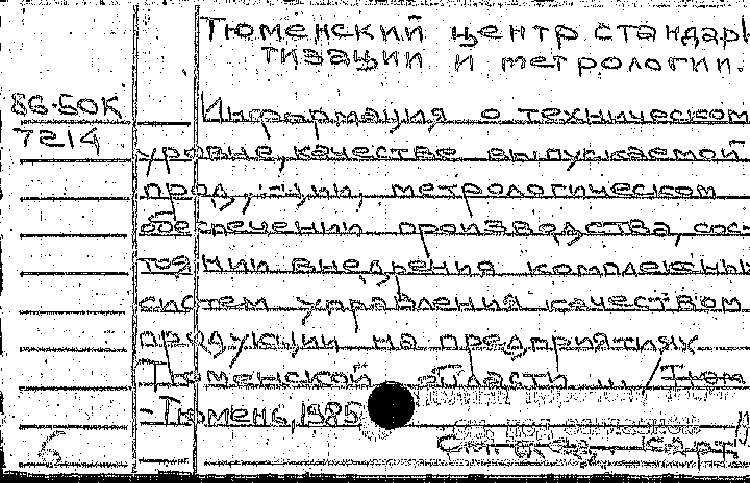 Тюменский центр стандар
тизации и метрологии.
86-50К
7214
Информация о техническом
уровне, качестве выпускаемой
продукции, метрологическом
обеспечении производства, сос-
тоянии внедрения комплексных
систем управления качеством
продукции на предприятиях
Тюменской области
- Тюмень, 1985
См. след. карт.
6